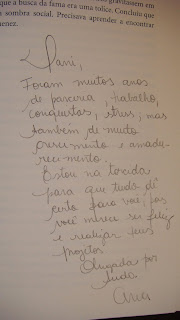 que a busca da fama era uma tolice. Concluiu que
sombra social. Precisava aprender a encontrar
Dani,
Foram muitos anos
de parceria, trabalho,
conquistas, stress, mas
também de muito
crescimento e amadu-
recimento.
Estou na torcida
para que tudo dê
certo para você, pois
você merece ser feliz
e realizar seus
projetos.
Obrigada por
tudo.